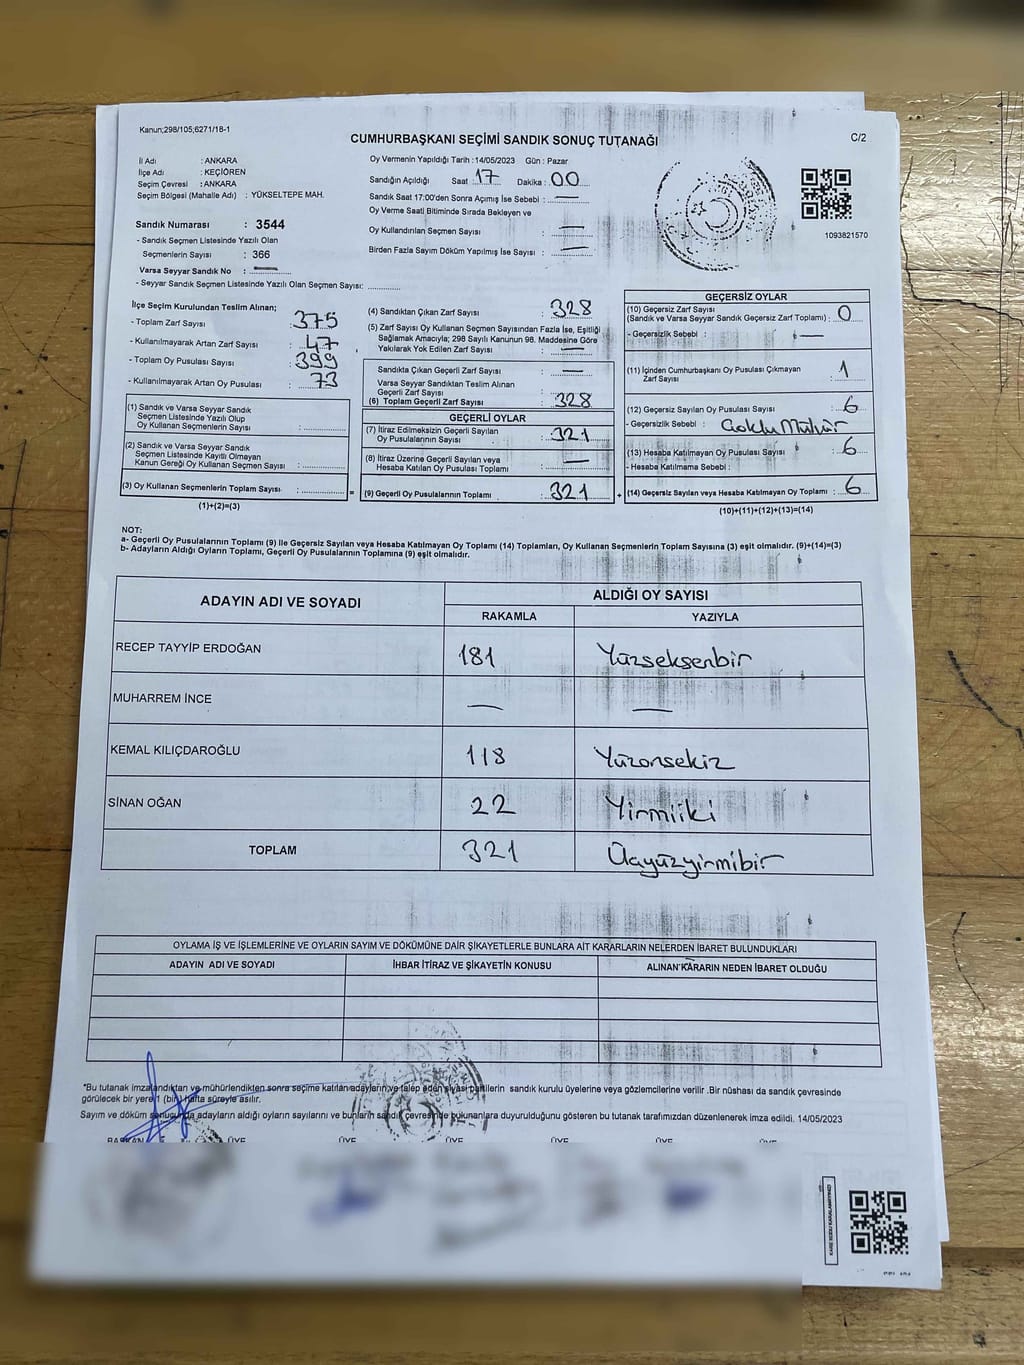 Kanun;298/105;6271/18-1
CUMHURBAŞKANI SEÇİMİ SANDIK SONUÇ TUTANAĞI
C/2
İl Adı : ANKARA
İlçe Adı : KEÇİÖREN
Seçim Çevresi : ANKARA
Seçim Bölgesi (Mahalle Adı) : YÜKSELTEPE MAH.
Oy Vermenin Yapıldığı Tarih : 14/05/2023 Gün : Pazar
Sandığın Açıldığı Saat : 17 Dakika : 00
Sandık Saat 17:00'den Sonra Açımış İse Sebebi : —
Oy Verme Saati Bitiminde Sırada Bekleyen ve
Oy Kullandırılan Seçmen Sayısı : —
Birden Fazla Sayım Döküm Yapılmış İse Sayısı : —
1093821570
Sandık Numarası : 3544
- Sandık Seçmen Listesinde Yazılı Olan
Seçmenlerin Sayısı : 366
Varsa Seyyar Sandık No : —
- Seyyar Sandık Seçmen Listesinde Yazılı Olan Seçmen Sayısı:
İlçe Seçim Kurulundan Teslim Alınan;
- Toplam Zarf Sayısı : 375
- Kullanılmayarak Artan Zarf Sayısı : 47
- Toplam Oy Pusulası Sayısı : 399
- Kullanılmayarak Artan Oy Pusulası : 73
(1) Sandık ve Varsa Seyyar Sandık
Seçmen Listesinde Yazılı Olup
Oy Kullanan Seçmenlerin Sayısı :
(2) Sandık ve Varsa Seyyar Sandık
Seçmen Listesinde Kayıtlı Olmayan
Kanun Gereği Oy Kullanan Seçmen Sayısı :
(3) Oy Kullanan Seçmenlerin Toplam Sayısı :
(1)+(2)=(3)
(4) Sandıktan Çıkan Zarf Sayısı : 328
(5) Zarf Sayısı Oy Kullanan Seçmen Sayısından Fazla İse, Eşitliği
Sağlamak Amacıyla; 298 Sayılı Kanunun 98. Maddesine Göre
Yakılarak Yok Edilen Zarf Sayısı : —
Sandıkta Çıkan Geçerli Zarf Sayısı : —
Varsa Seyyar Sandıktan Teslim Alınan
Geçerli Zarf Sayısı :
(6) Toplam Geçerli Zarf Sayısı : 328
GEÇERLİ OYLAR
(7) İtiraz Edilmeksizin Geçerli Sayılan
Oy Pusulalarının Sayısı : 321
(8) İtiraz Üzerine Geçerli Sayılan veya
Hesaba Katılan Oy Pusulası Toplamı : —
(9) Geçerli Oy Pusulalarının Toplamı : 321
GEÇERSİZ OYLAR
(10) Geçersiz Zarf Sayısı
(Sandık ve Varsa Seyyar Sandık Geçersiz Zarf Toplamı) : 0
- Geçersizlik Sebebi : —
(11) İçinden Cumhurbaşkanı Oy Pusulası Çıkmayan
Zarf Sayısı : 1
(12) Geçersiz Sayılan Oy Pusulası Sayısı : 6
- Geçersizlik Sebebi : Çoklu Mühür
(13) Hesaba Katılmayan Oy Pusulası Sayısı : 6
- Hesaba Katılmama Sebebi :
(14) Geçersiz Sayılan veya Hesaba Katılmayan Oy Toplamı : 6
(10)+(11)+(12)+(13)=(14)
NOT:
a- Geçerli Oy Pusulalarının Toplamı (9) ile Geçersiz Sayılan veya Hesaba Katılmayan Oy Toplamı (14) Toplamları, Oy Kullanan Seçmenlerin Toplam Sayısına (3) eşit olmalıdır. (9)+(14)=(3)
b- Adayların Aldığı Oyların Toplamı, Geçerli Oy Pusulalarının Toplamına (9) eşit olmalıdır.
ADAYIN ADI VE SOYADI
ALDIĞI OY SAYISI
RAKAMLA YAZIYLA
RECEP TAYYİP ERDOĞAN 181 Yüzseksenbir
MUHARREM İNCE — —
KEMAL KILIÇDAROĞLU 118 Yüzonsekiz
SİNAN OĞAN 22 Yirmiiki
TOPLAM 321 Üçyüzyirmibir
OYLAMA İŞ VE İŞLEMLERİNE VE OYLARIN SAYIM VE DÖKÜMÜNE DAİR ŞİKAYETLERLE BUNLARA AİT KARARLARIN NELERDEN İBARET BULUNDUKLARI
ADAYIN ADI VE SOYADI İHBAR İTİRAZ VE ŞİKAYETİN KONUSU ALINAN KARARIN NEDEN İBARET OLDUĞU
*Bu tutanak imzalandıktan ve mühürlendikten sonra seçime katılan adayların ve talep eden siyasi partilerin sandık kurulu üyelerine veya gözlemcilerine verilir .Bir nüshası da sandık çevresinde
görülecek bir yere 1 (bir) hafta süreyle asılır.
Sayım ve döküm sonucunda adayların aldığı oyların sayılarını ve bunların sandık çevresinde bulunanlara duyurulduğunu gösteren bu tutanak tarafımızdan düzenlenerek imza edildi. 14/05/2023
BAŞKAN ÜYE ÜYE ÜYE ÜYE ÜYE ÜYE